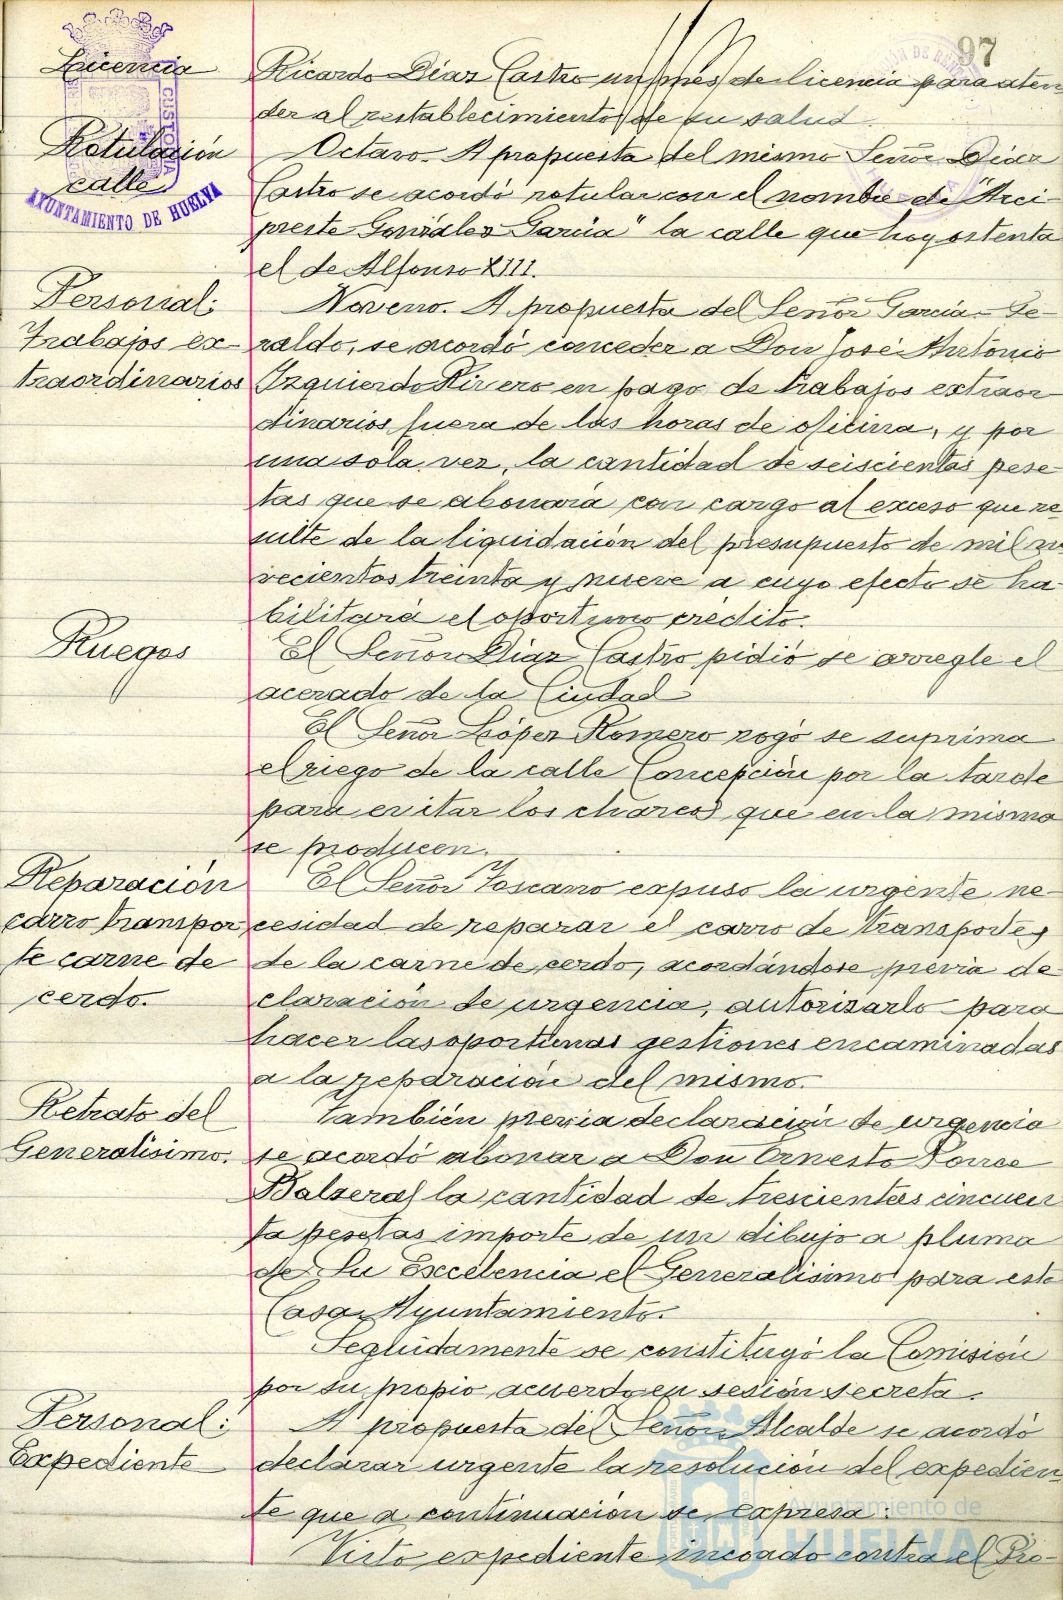 97
Licencia
Ricardo Díaz Castro un mes de licencia para aten
der al restablecimiento de su salud.
Rotulación
calle
AYUNTAMIENTO DE HUELVA
Octavo. A propuesta del mismo Señor Díaz
Castro se acordó rotular con el nombre de "Arci-
preste González García" la calle que hoy ostenta
el de Alfonso XIII.
Personal:
Trabajos ex-
traordinarios
Noveno. A propuesta del Señor García-Ge-
raldo, se acordó conceder a Don José Antonio
Izquierdo Rivero en pago de trabajos extraor
dinarios fuera de las horas de oficina, y por
una sola vez, la cantidad de seiscientas pese
tas que se abonará con cargo al exceso que re-
sulte de la liquidación del presupuesto de mil no
vecientos treinta y nueve a cuyo efecto se ha-
bilitará el oportuno crédito.
Ruegos
El Señor Díaz Castro pidió se arregle el
acerado de la Ciudad
El Señor López Romero rogó se suprima
el riego de la calle Concepción por la tarde
para evitar los charcos que en la misma
se producen.
Reparación
carro transpor
te carne de
cerdo.
El Señor Toscano expuso la urgente ne-
cesidad de reparar el carro de transportes
de la carne de cerdo, acordándose previa de-
claración de urgencia, autorizarlo para
hacer las oportunas gestiones encaminadas
a la reparación del mismo.
Retrato del
Generalísimo.
También previa declaración de urgencia
se acordó abonar a Don Ernesto
la cantidad de trescientas cincuen
ta pesetas importe de un dibujo a pluma
de Su Excelencia el Generalísimo para esta
Casa Ayuntamiento.
Seguidamente se constituyó la Comisión
por su propio acuerdo en sesión secreta.
Personal:
Expediente
A propuesta del Señor Alcalde se acordó
declarar urgente la resolución del expedien
te que a continuación se expresa:
Visto expediente incoado contra el Pro-
Ayuntamiento de
HUELVA